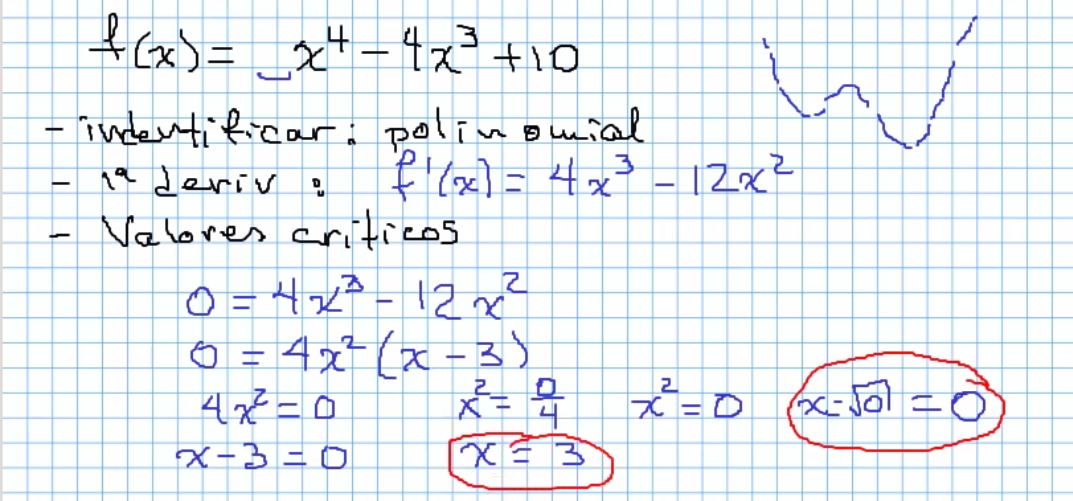 f(x) = x⁴ - 4x³ + 10
- indentificar: polinomial
- 1ª deriv: f'(x) = 4x³ - 12x²
- Valores criticos
0 = 4x³ - 12x²
0 = 4x² (x - 3)
4x² = 0 x² = 0/4 x² = 0 x = √0 = 0
x - 3 = 0 x = 3